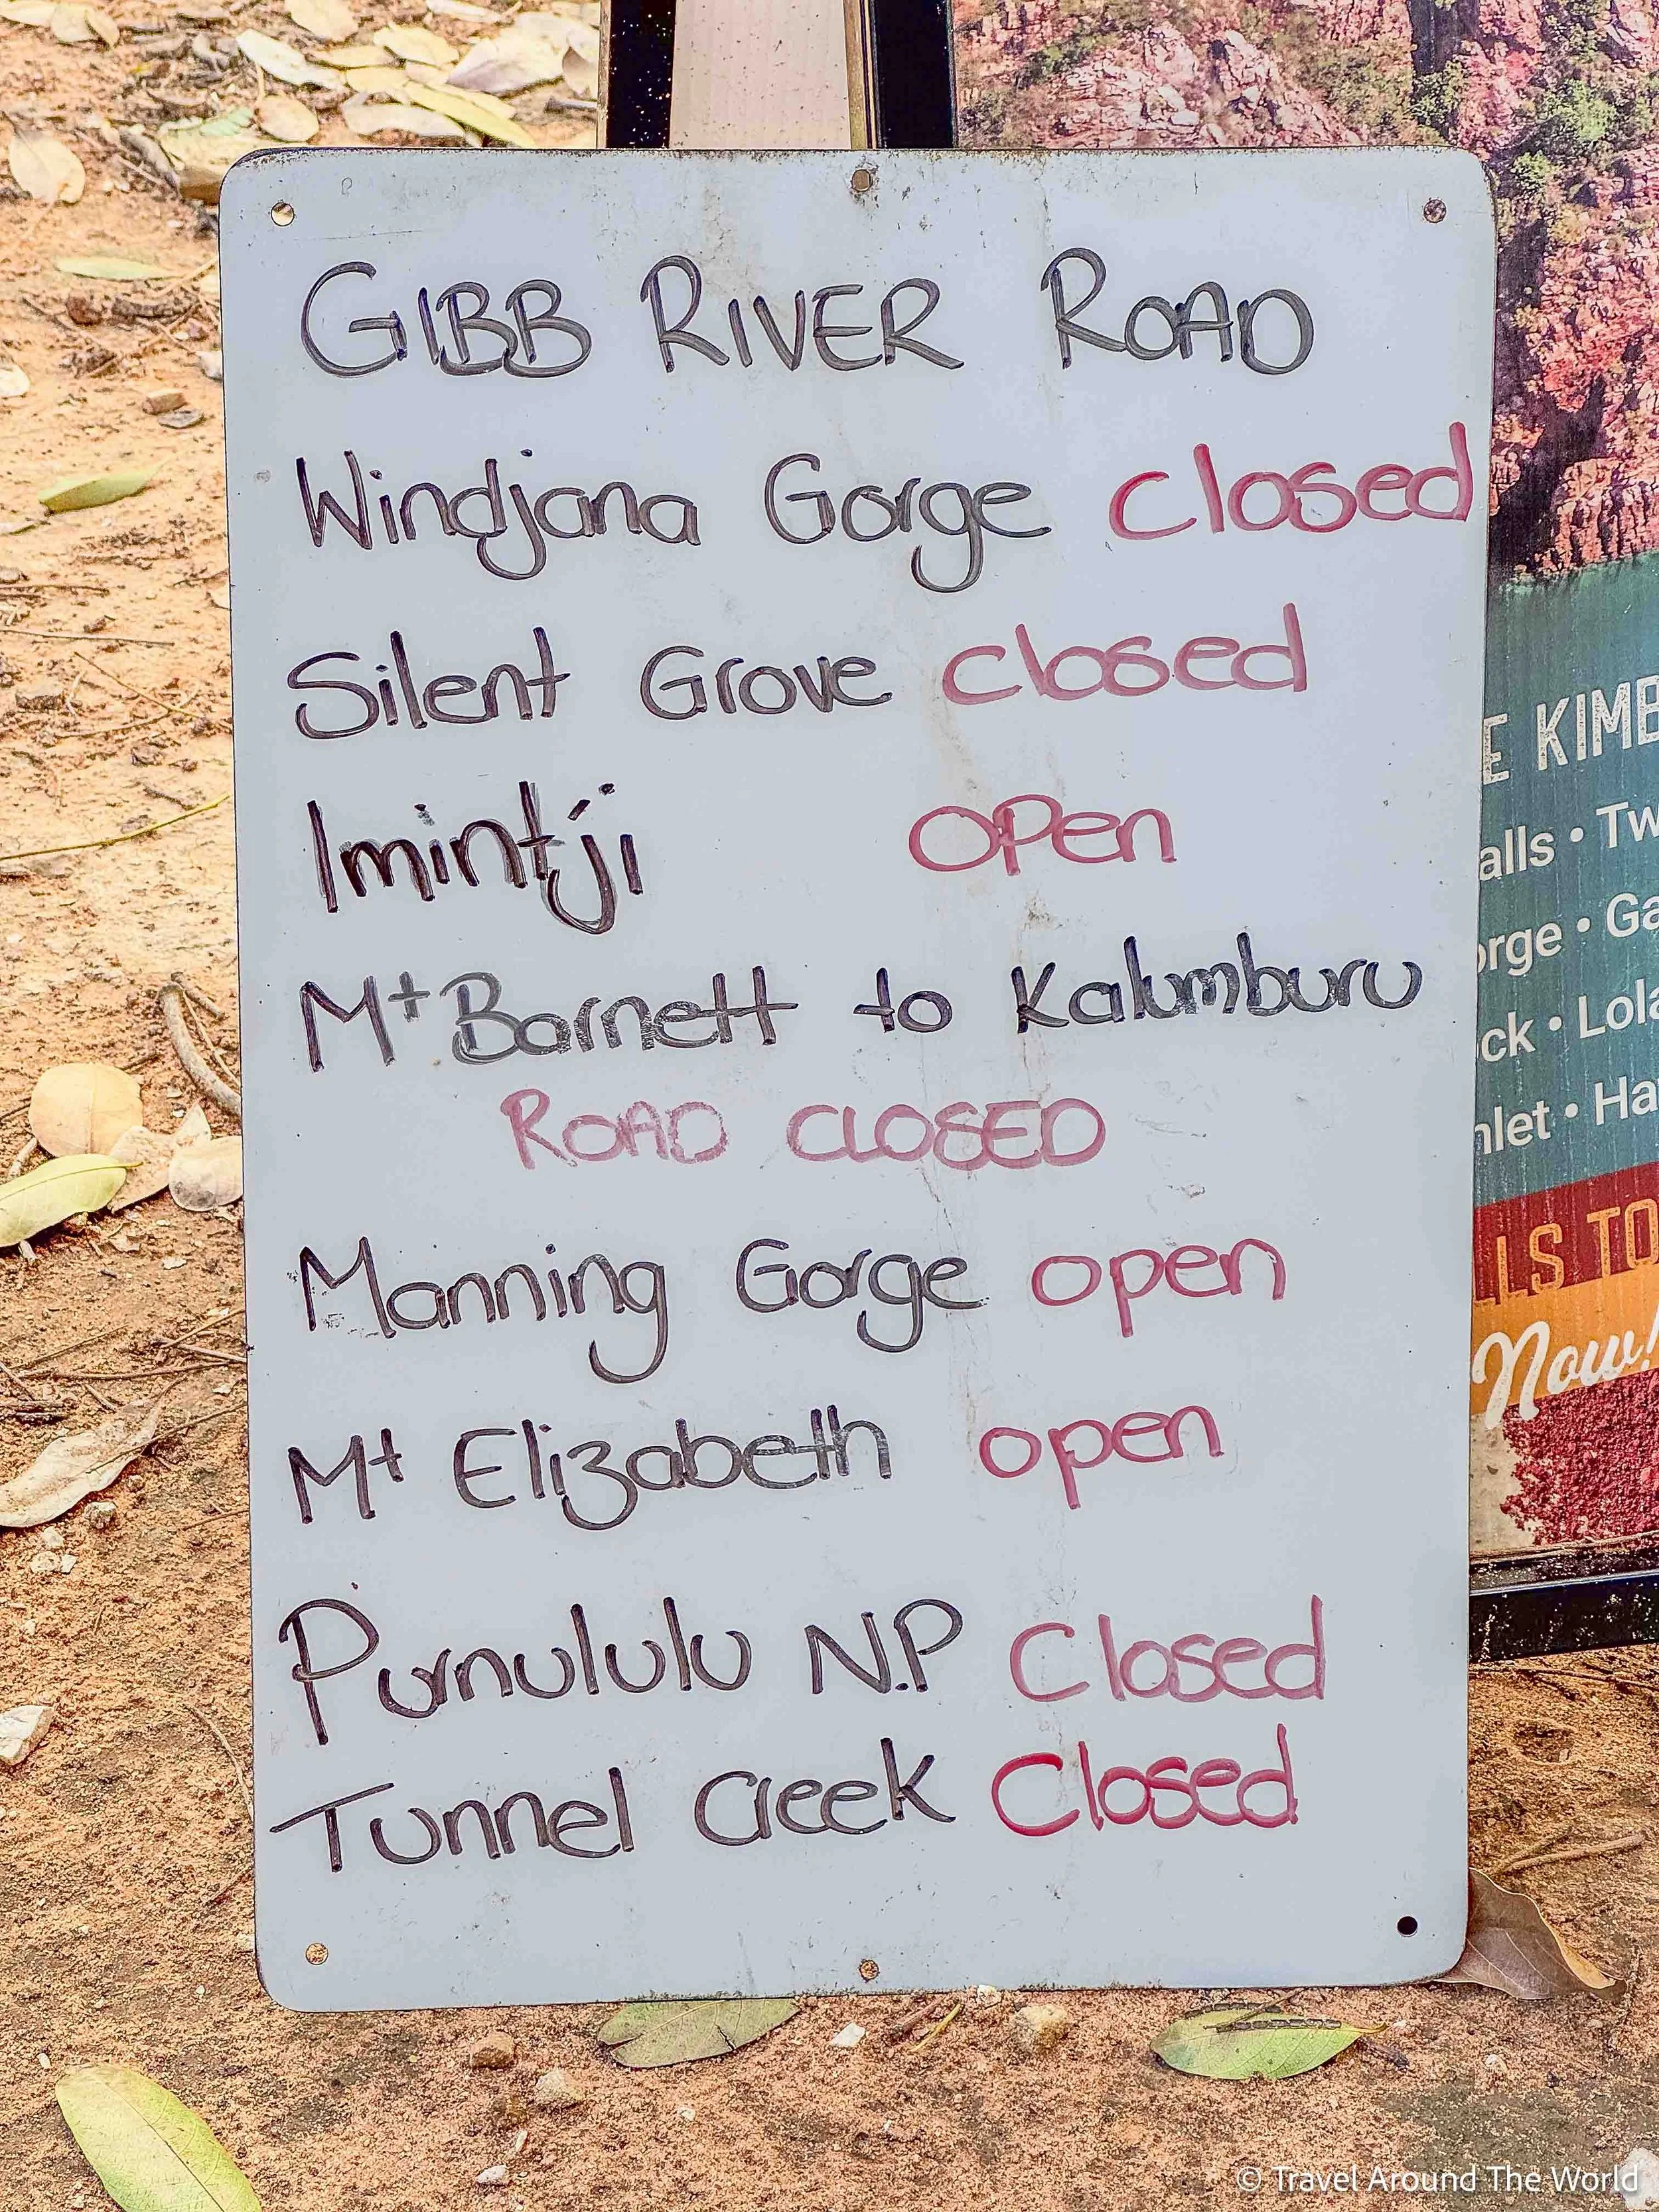 GIBB RIVER ROAD
Windjana Gorge closed
Silent Grove closed
Imintji OPen
Mt Barnett to Kalumburu
ROAD CLOSED
Manning Gorge open
Mt Elizabeth open
Purnululu N.P Closed
Tunnel Creek Closed
E KIMB
alls • Tw
orge • Ga
ck • Lola
nlet • Ha
LLS TO
Now!
© Travel Around The World